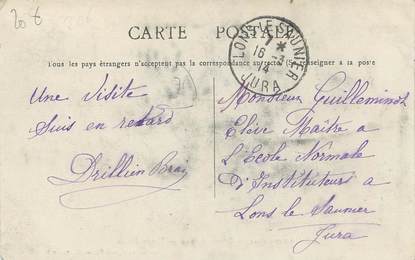 20 €
CARTE POSTALE
LONS-LE-SAUNIER
7 *
16-3
14
JURA
Tous les pays étrangers n'acceptent pas la correspondance au recto (Se renseigner à la poste
Une Visite
Suis en retard
Drillien
Monsieur Guilleminot
Elève Maître a
L'Ecole Normale
D'Instituteurs a
Lons le Saunier
Jura